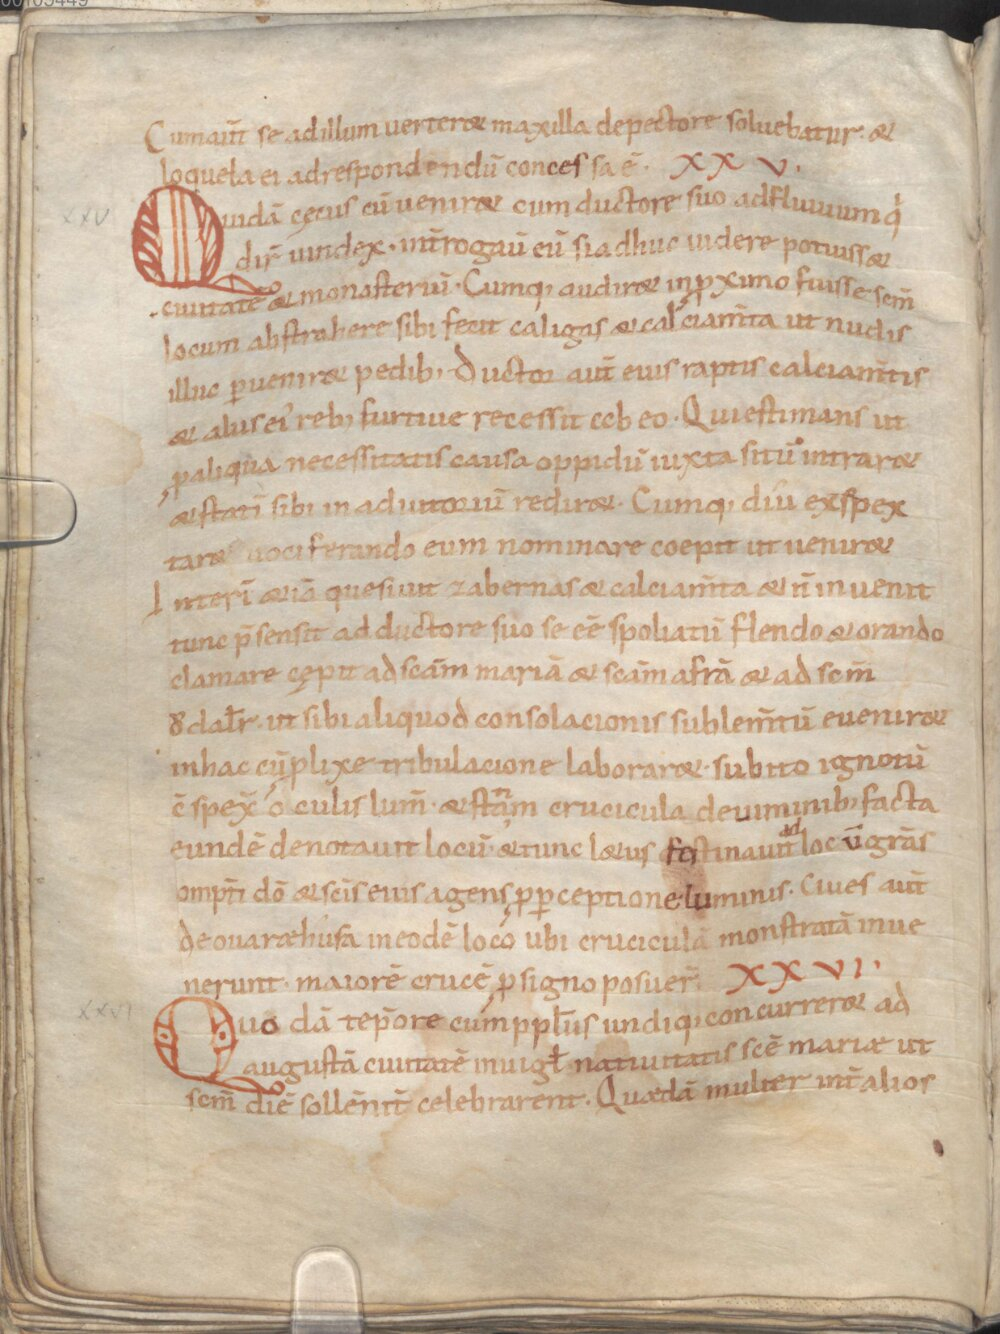 Cumaut̄ se adillum verteret maxilla depectore soluebatur · et
loquela ei adrespondendū concessa ē · XXV ·
Quidā cęcus cū veniret cum ductore suo adfluuium q̇
dir̄ uindex · int̄rogau ̄ eū si adhuc uidere potuisset
ciuitatē et monasteriū · Cumq; audiret inpximo fuisse scm̄
locum abstrahere sibi fecit caligas et calciam̄ta ut nudis
illuc pueniret pedib; Ductor aut̄ eius raptis calciam̄tis
et aliis ei reb; furtiue recessit ab eo · Qui estimans ut
paliqua necessitatis causa oppidū iuxta sitū intraret
et statī sibi in adiutoriū rediret · Cumq; diu exspex
taret uociferando eum nominare coepit ut ueniret
Interī etiā quesiuit zabernas et calciam̄ta et n̄ inuenit
tunc p̄sensit ad ductore suo se eē spoliatū flendo et orando
clamare cępit ad scām mariā et scām afrā et ad scm̄
ȣdalr̄ · ut sibi aliquod consolacionis sublem̄tū eueniret
inhac cū pplixe tribulacione laboraret · subito ignotū
c̄spex̄ oculis lum̄ · et stan̄m crucicula deuiminib; facta
eundē denotauit locū · et tunc laetus festinauit ad locū grās
omp̄ti dō et scis̄ eius agens p pceptione luminis · Ciues aut̄
de ouuaraehusa ineodē loco ubi cruciculā monstratā inue
nerunt · maiorē crucē p signo posuer̄ · XXVI ·
Quodā tep̄ore cum ppl̄is undiq; concurreret ad
augustā ciuitatē inuigl̄ natiuitatis scē mariae ut
scm̄ diē sollēnit̄ celebrarent · Quaedā mulier int̄ alios
XXV
XXVI